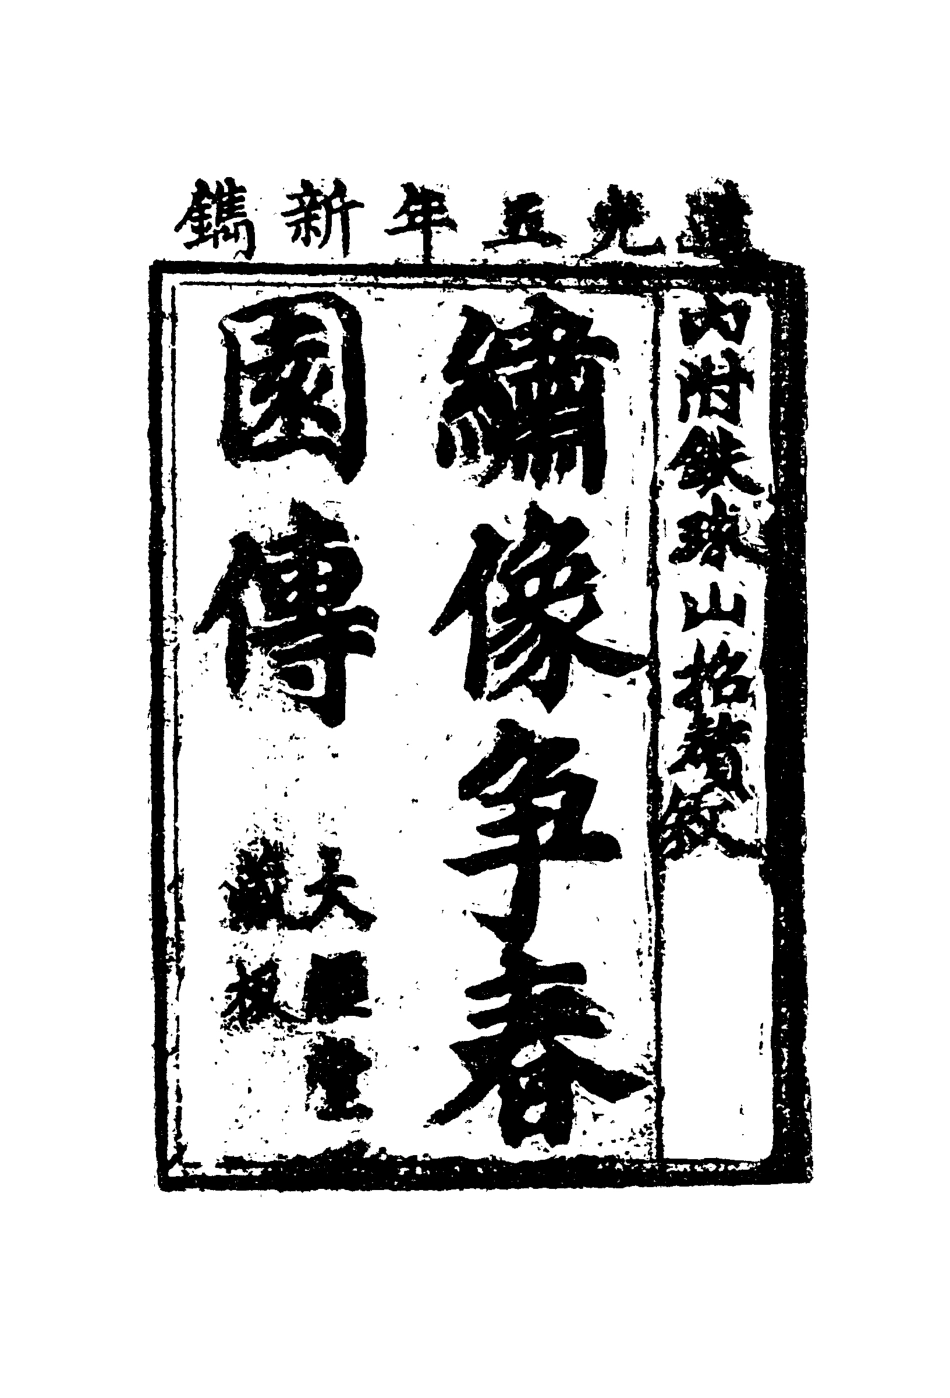 道光五年新鐫
內附鉄球山招贅敘
繡像争春
園傳
大經堂
藏板